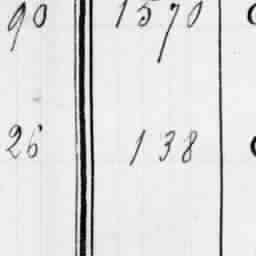 90 1570
26 138